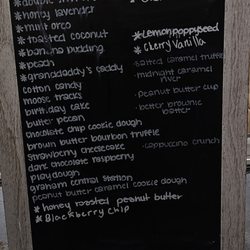 * honey lavender
* mint oreo
* toasted coconut
* banana pudding
* peach
* granddaddy's caddy
cotton candy
moose tracks
birthday cake
butter pecan
chocolate chip cookie dough
brown butter bourbon truffle
strawberry cheesecake
dark chocolate raspberry
playdough
graham central station
peanut butter caramel cookie dough
* honey roasted peanut butter
* Blackberry Chip
* Lemonpoppyseed
* Cherry Vanilla
· salted caramel truffle
· midnight caramel
river
· Peanut butter cup
· better brownie
batter
· cappuccino crunch